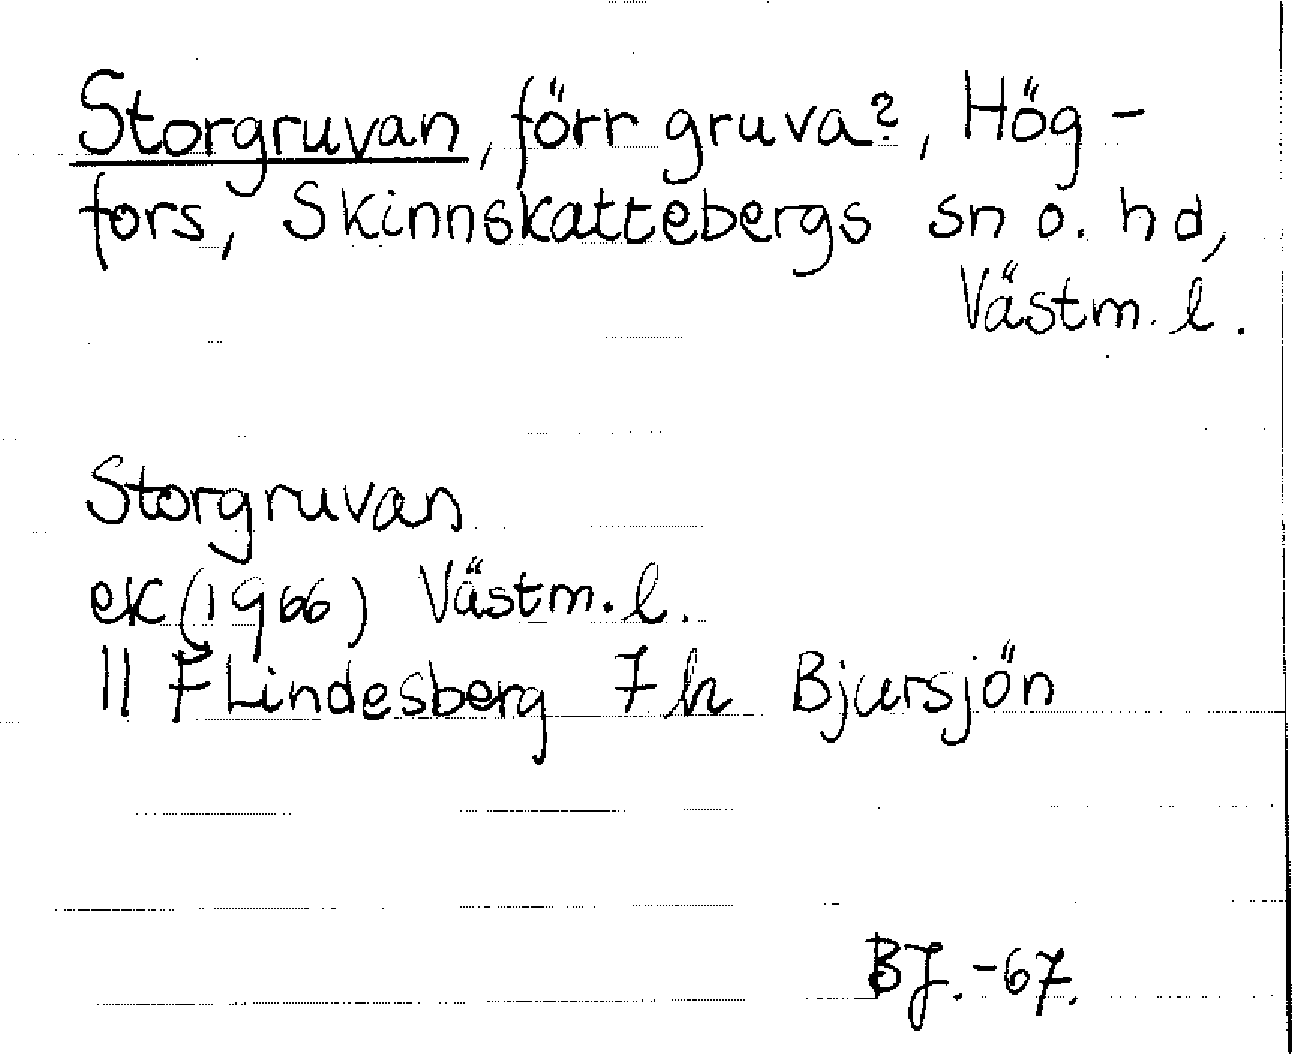 Storgruvan, förr gruva?, Hög-
fors, Skinnskattebergs sn o. hd,
Västm. l.
Storgruvan
ek (1966) Västm. l.
11 F Lindesberg 7 h Bjursjön
BJ. -67.